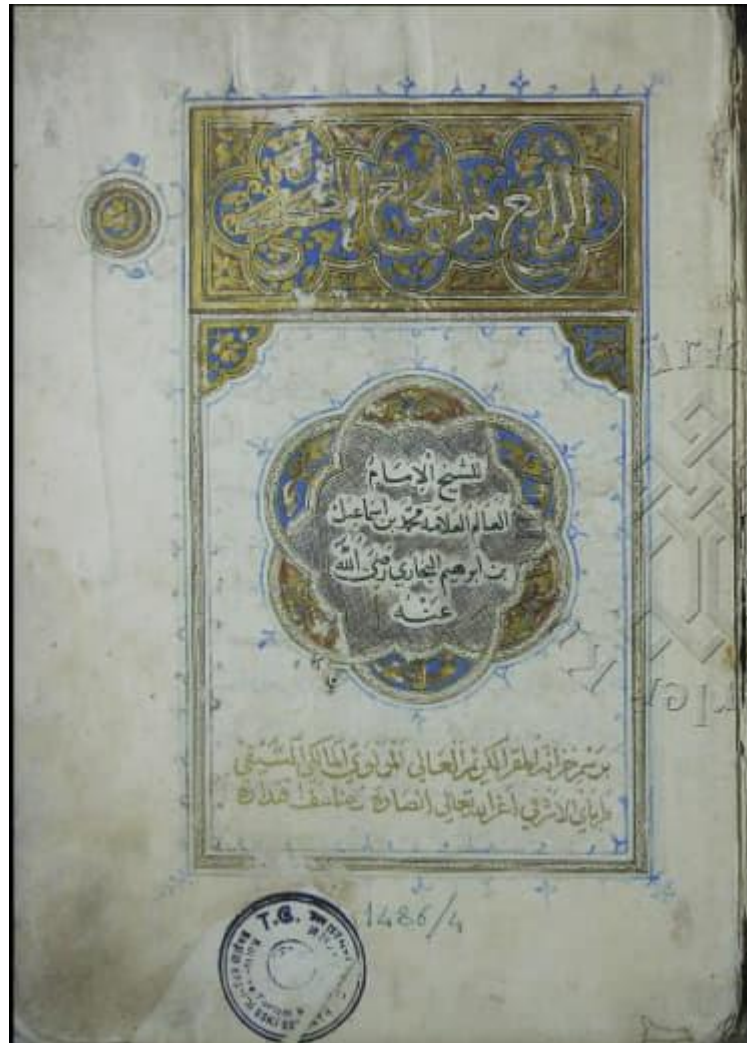 الرابع من الجامع الصحيح
للشيخ الإمام
العالم العلامة محمد بن اسماعيل
بن ابرهيم البخاري رضي الله
عنه
برسم خزانة المقر الكريم العالي المولوي المالكي السيفي
الاشرفي اعز الله تعالى انصاره وضاعف اقتداره
1486/4
T.C.
ESKİ